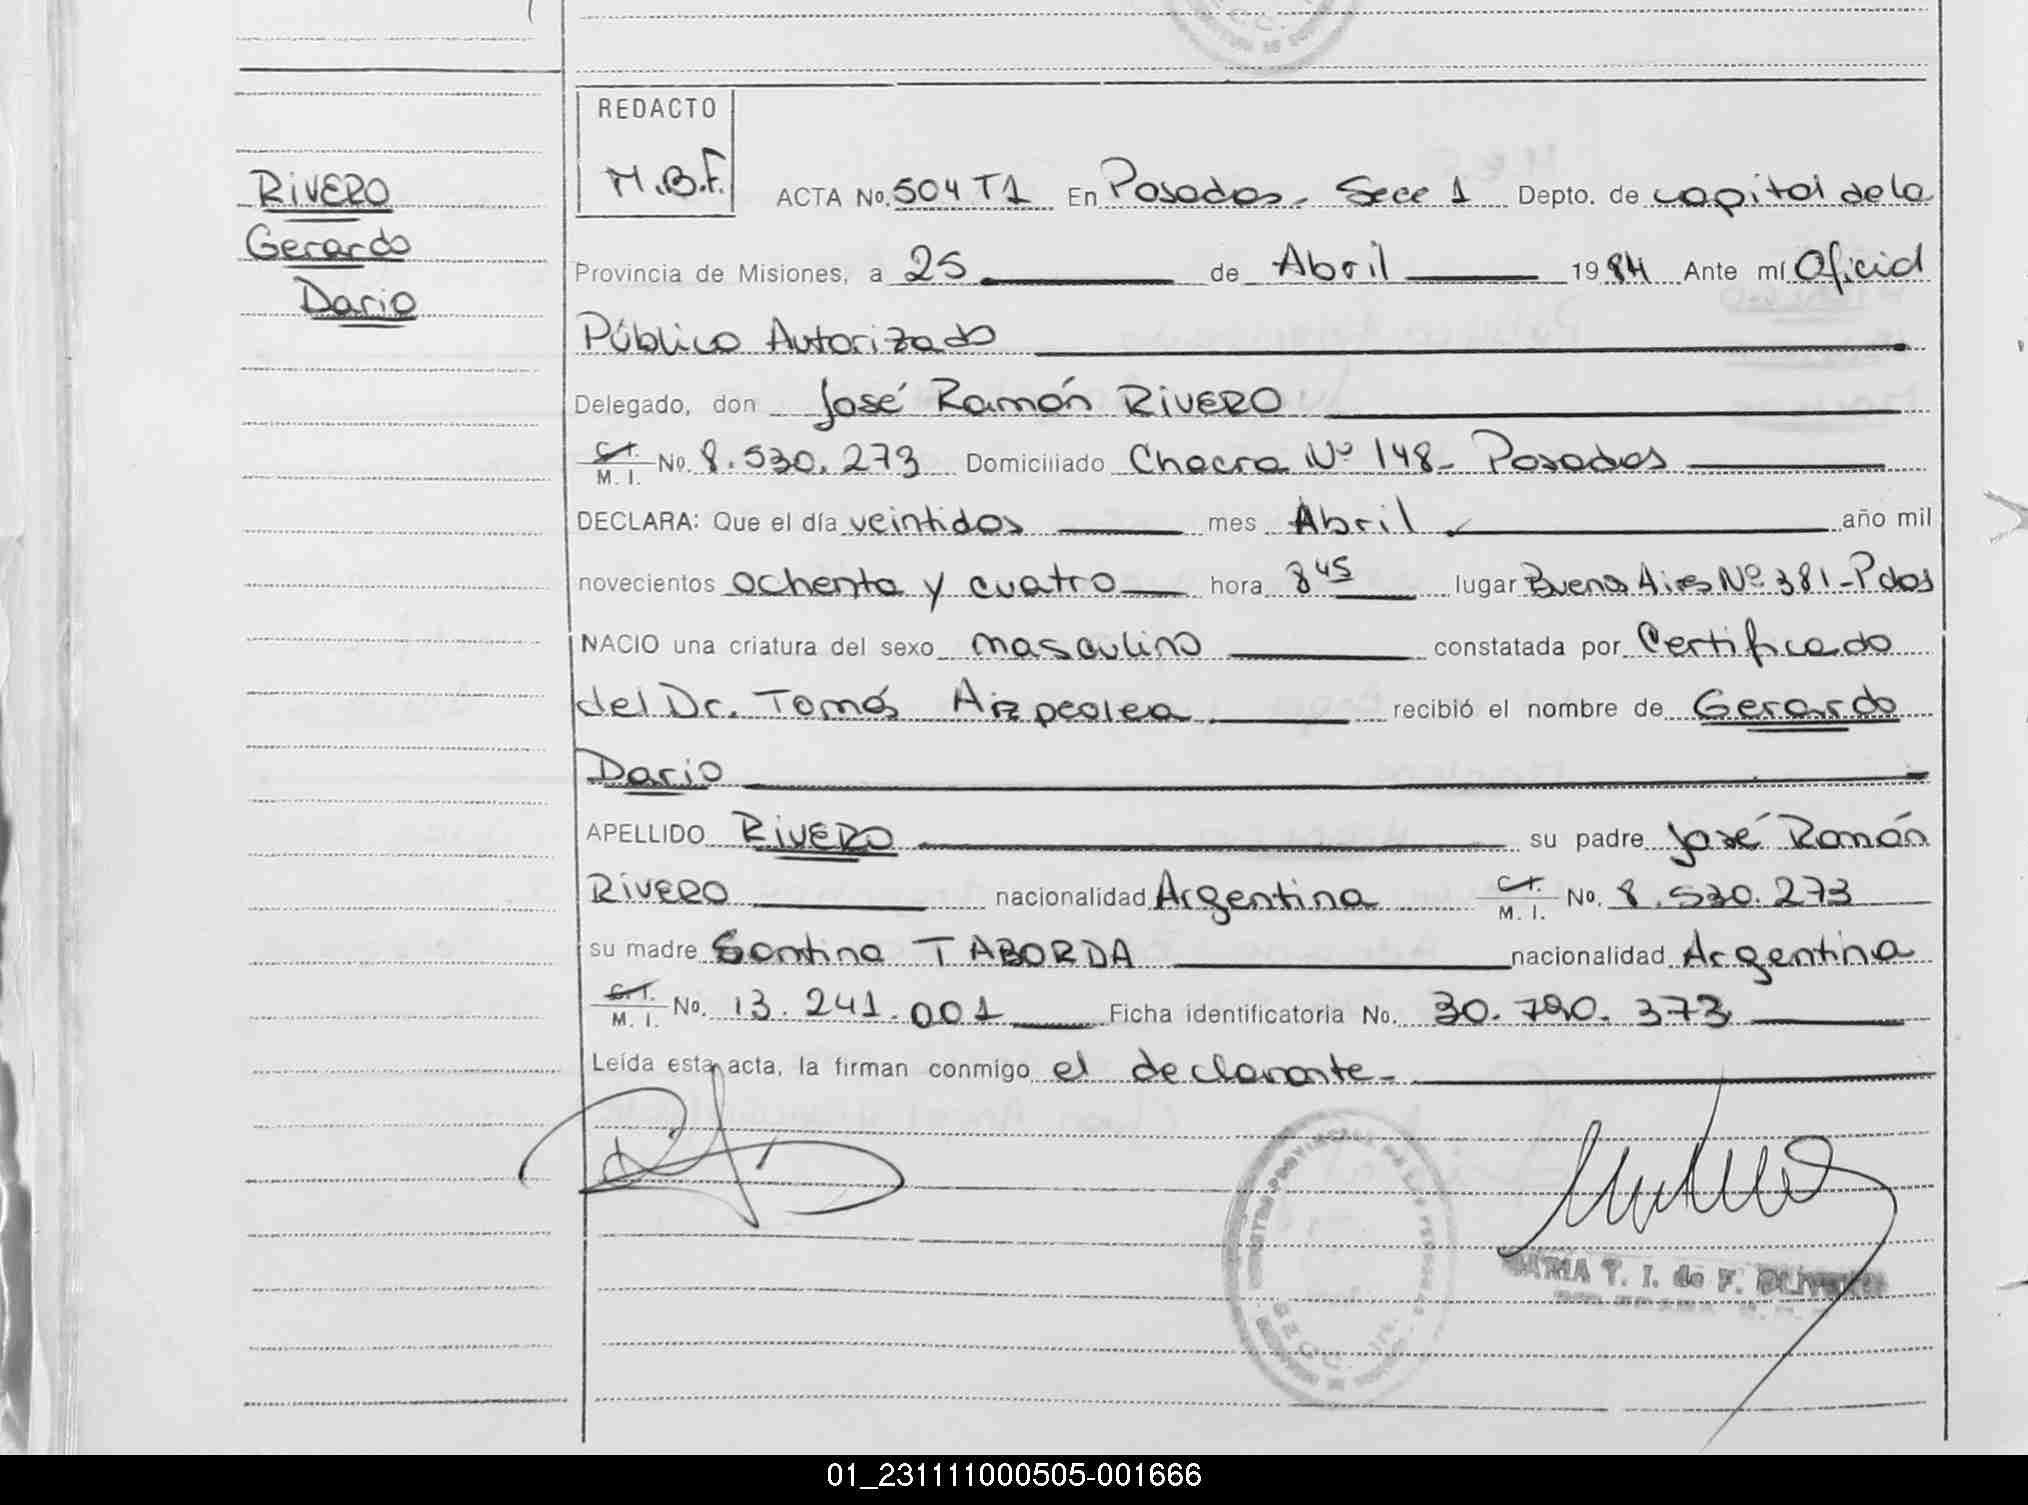 REDACTO
M.B.F.
ACTA No. 504 T1 En Posadas - Secc 1 Depto. de capital de la
RIVERO
Gerardo
Dario
Provincia de Misiones, a 25 de Abril 1984 Ante mí Oficial
Público Autorizado
Delegado, don José Ramón RIVERO
C.I. M. I. No. 8.530.273 Domiciliado Chacra Nº 148 - Posadas
DECLARA: Que el día veintidos mes Abril año mil
novecientos ochenta y cuatro hora 8 45 lugar Buenos Aires Nº 381 - Pdas
NACIO una criatura del sexo masculino constatada por Certificado
del Dr. Tomás Aizpeolea recibió el nombre de Gerardo
Dario
APELLIDO RIVERO su padre José Ramón
RIVERO nacionalidad Argentina C.I. M. I. No. 8.530.273
su madre Santina TABORDA nacionalidad Argentina
C.I. M. I. No. 13.241.001 Ficha identificatoria No. 30.790.373
Leída esta acta, la firman conmigo el declarante -
01_231111000505-001666